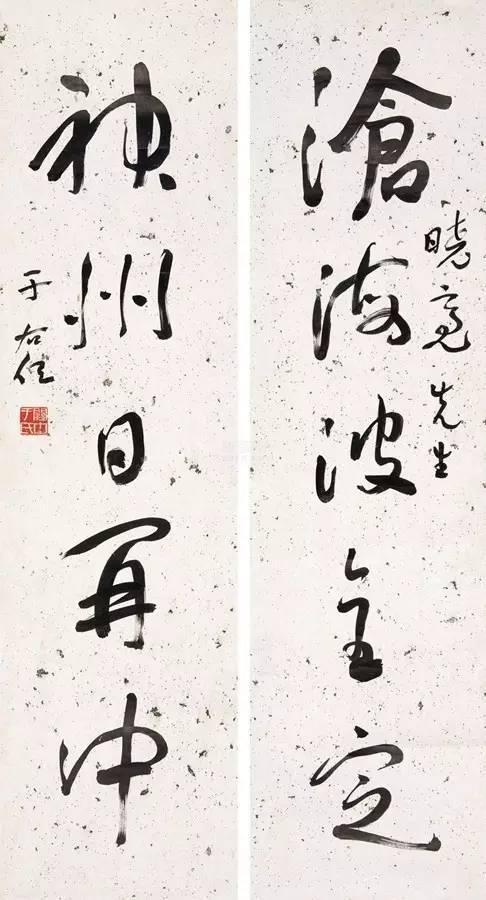 滄海波全定
曉亮先生
神州日再中
于右任
關中于氏